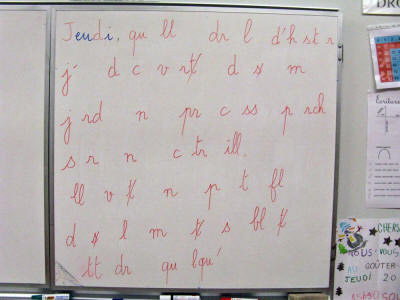 Jeudi, qu ll dr l d'h st r
j' d c v rt d s m
j rd n pr c ss p rch
s r n c tr ill
ll v t n p t fl
d s l m t s bl t
tt dr qu lqu'
DRO
Ecriture
CHERS
NOUS VOUS
AU GOÛTER
JEUDI 20